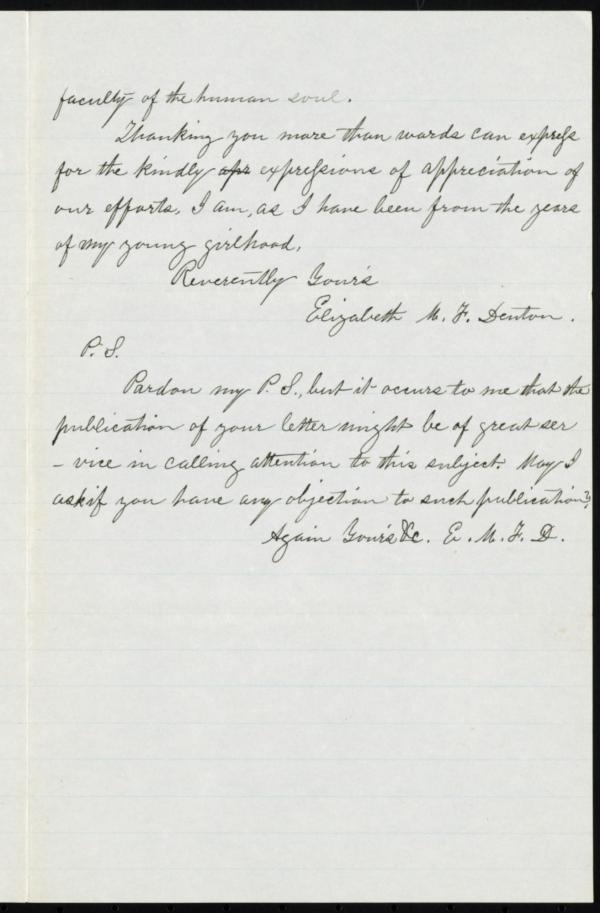 faculty of the human soul.
Thanking you more than words can express
for the kindly apr expressions of appreciation of
our efforts, I am, as I have been from the years
of my young girlhood,
Reverently Your's
Elizabeth M. F. Denton.
P. S.
Pardon my P. S., but it occurs to me that the
publication of your letter might be of great ser
- vice in calling attention to this subject. May I
ask if you have any objection to such publication?
Again Your's &c. E. M. F. D.